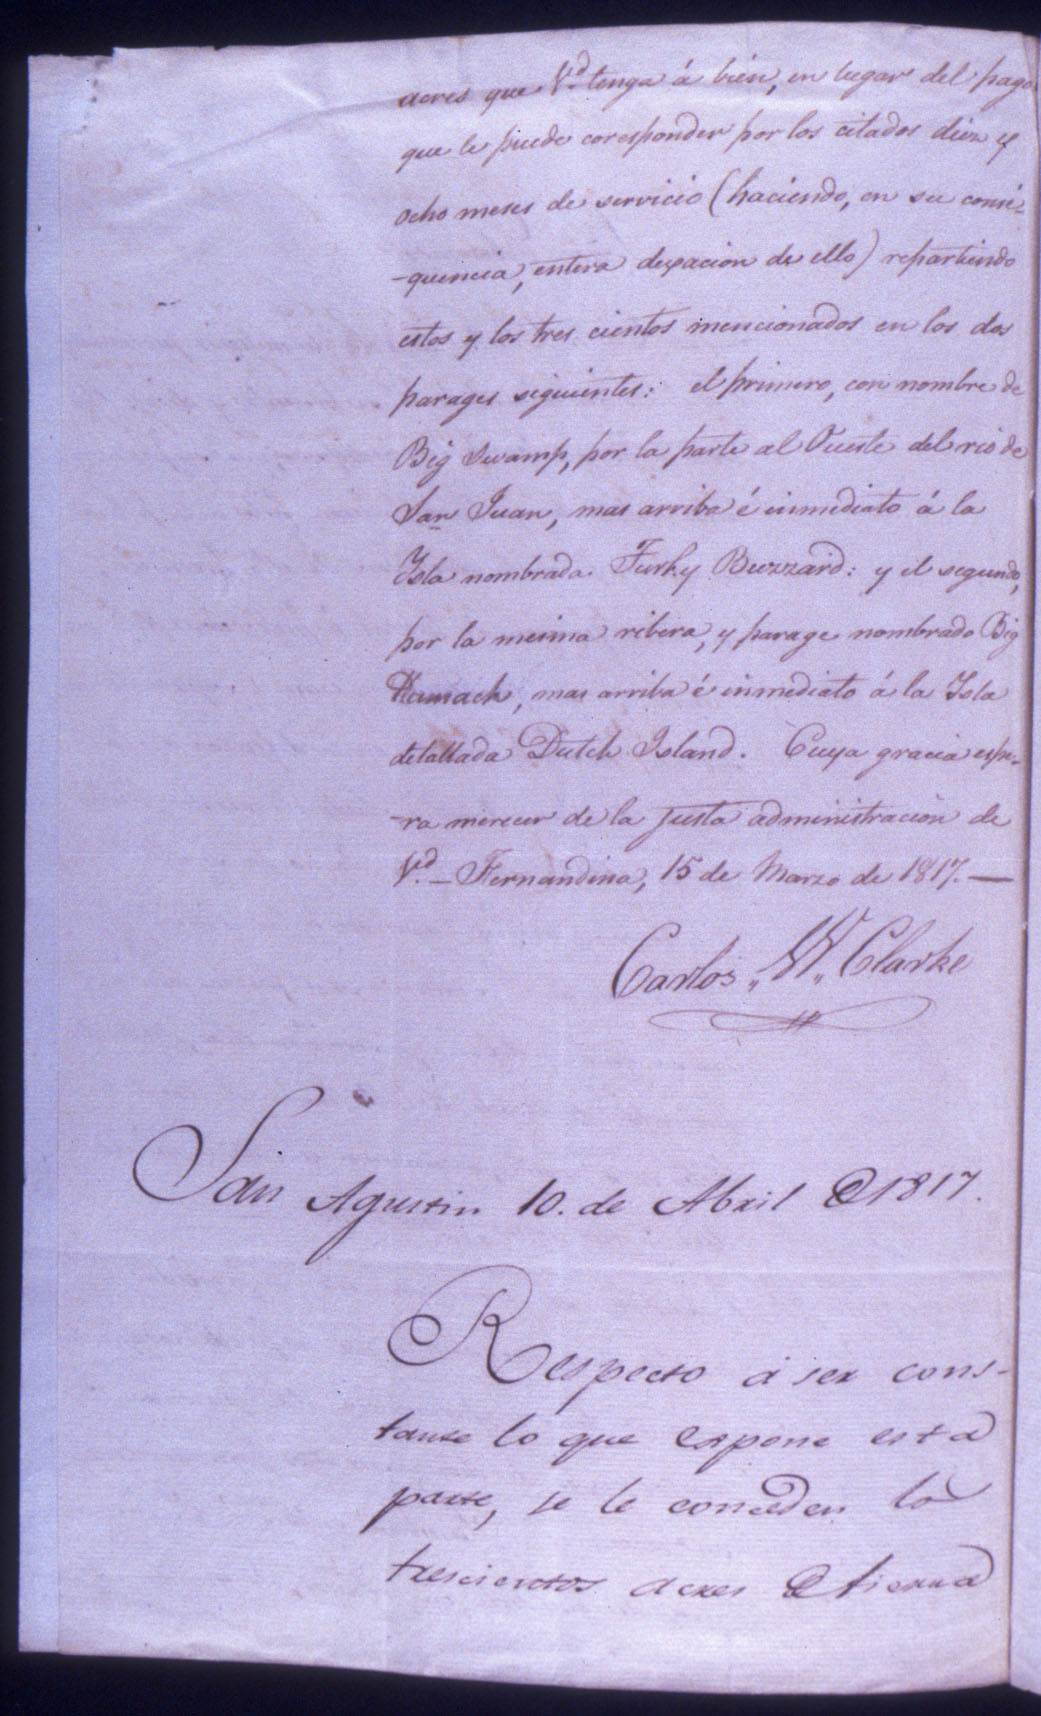 acres que V.d tenga á bien, en lugar del pago
que le puede coresponder por los citados diez y
ocho meses de servicio (haciendo, en su conse-
-quencia, entera dexacion de ello) repartiendo
estos y los tres cientos mencionados en los dos
parages siguientes: el primero, con nombre de
Big Swamp, por la parte al Oueste del rio de
San Juan, mas arriba é inmediato á la
Isla nombrada Turky Buzzard: y el segundo,
por la mesma ribera, y parage nombrado Big
Hamack, mas arriba é inmediato á la Isla
detallada Dutch Island. Cuya gracia espe-
-ra merecer de la justa administracion de
V.d — Fernandina, 15 de Marzo de 1817. —
Carlos „W„ Clarke
San Agustin 10. de Abril de 1817.
Respecto á ser cons-
tante lo que expone esta
parte, se le conceden lo
trescientos acres de tierra